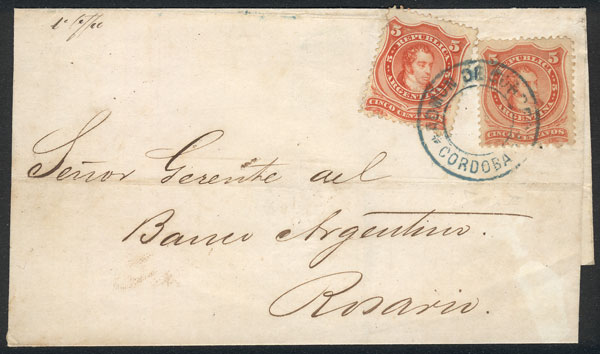 5 REPUBLICA 5
ARGENTINA
CINCO CENTAVOS
5 REPUBLICA 5
ARGENTINA
CINCO CENTAVOS
CORDOBA
Señor Gerente del
Banco Argentino.
Rosario.